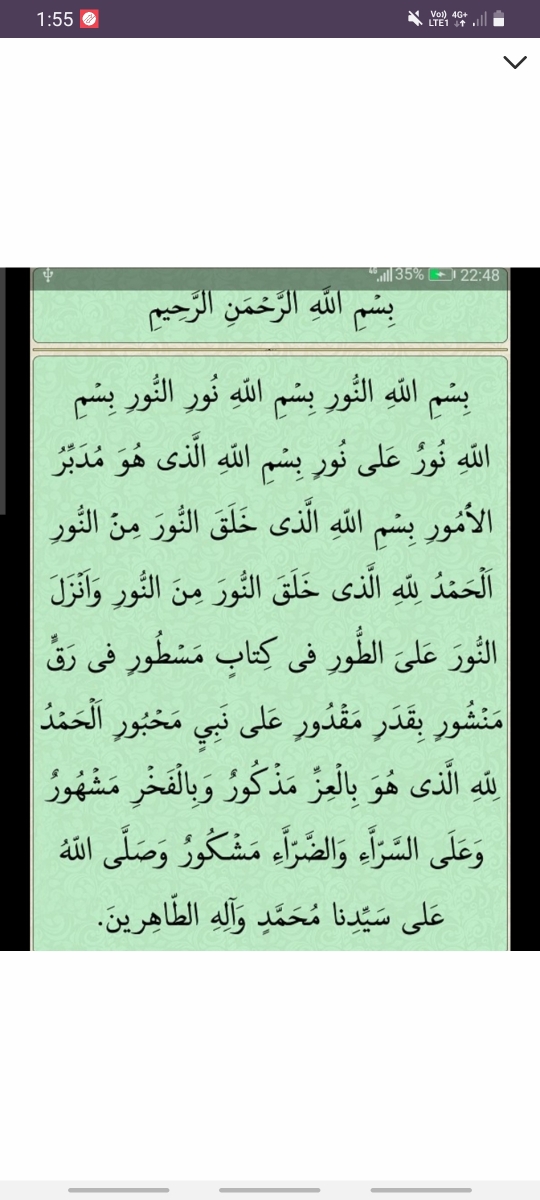 1:55
Vo)) 4G+
LTE1
4G 35% 22:48
بِسْمِ اللَّهِ الرَّحْمَنِ الرَّحِيمِ
بِسْمِ اللّهِ النُّورِ بِسْمِ اللّهِ نُورِ النُّورِ بِسْمِ
اللّهِ نُورٌ عَلى نُورٍ بِسْمِ اللّهِ الَّذى هُوَ مُدَبِّرُ
الاْمُورِ بِسْمِ اللّهِ الَّذى خَلَقَ النُّورَ مِنْ النُّورِ
اَلْحَمْدُ لِلّهِ الَّذى خَلَقَ النُّورَ مِنَ النُّورِ وَاَنْزَلَ
النُّورَ عَلىَ الطُّورِ فى كِتابٍ مَسْطُورٍ فى رَقٍّ
مَنْشُورٍ بِقَدَرٍ مَقْدُورٍ عَلى نَبِيٍ مَحْبُورٍ اَلْحَمْدُ
لِلّهِ الَّذى هُوَ بِالْعِزِّ مَذْكُورٌ وَبِالْفَخْرِ مَشْهُورٌ
وَعَلَى السَّرّاَّءِ وَالضَّرّاَّءِ مَشْكُورٌ وَصَلَّى اللّهُ
عَلى سَيِّدِنا مُحَمَّدٍ وَآلِهِ الطّاهِرينَ.